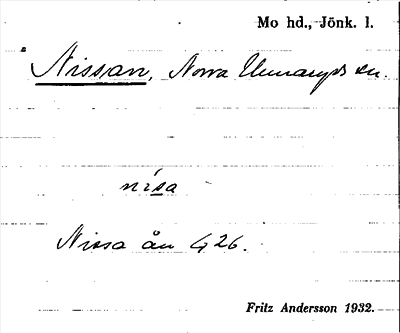 Mo hd., Jönk. l.
Nissan, Norra Unnaryds sn.
nísa
Nissa ån G 26.
Fritz Andersson 1932.